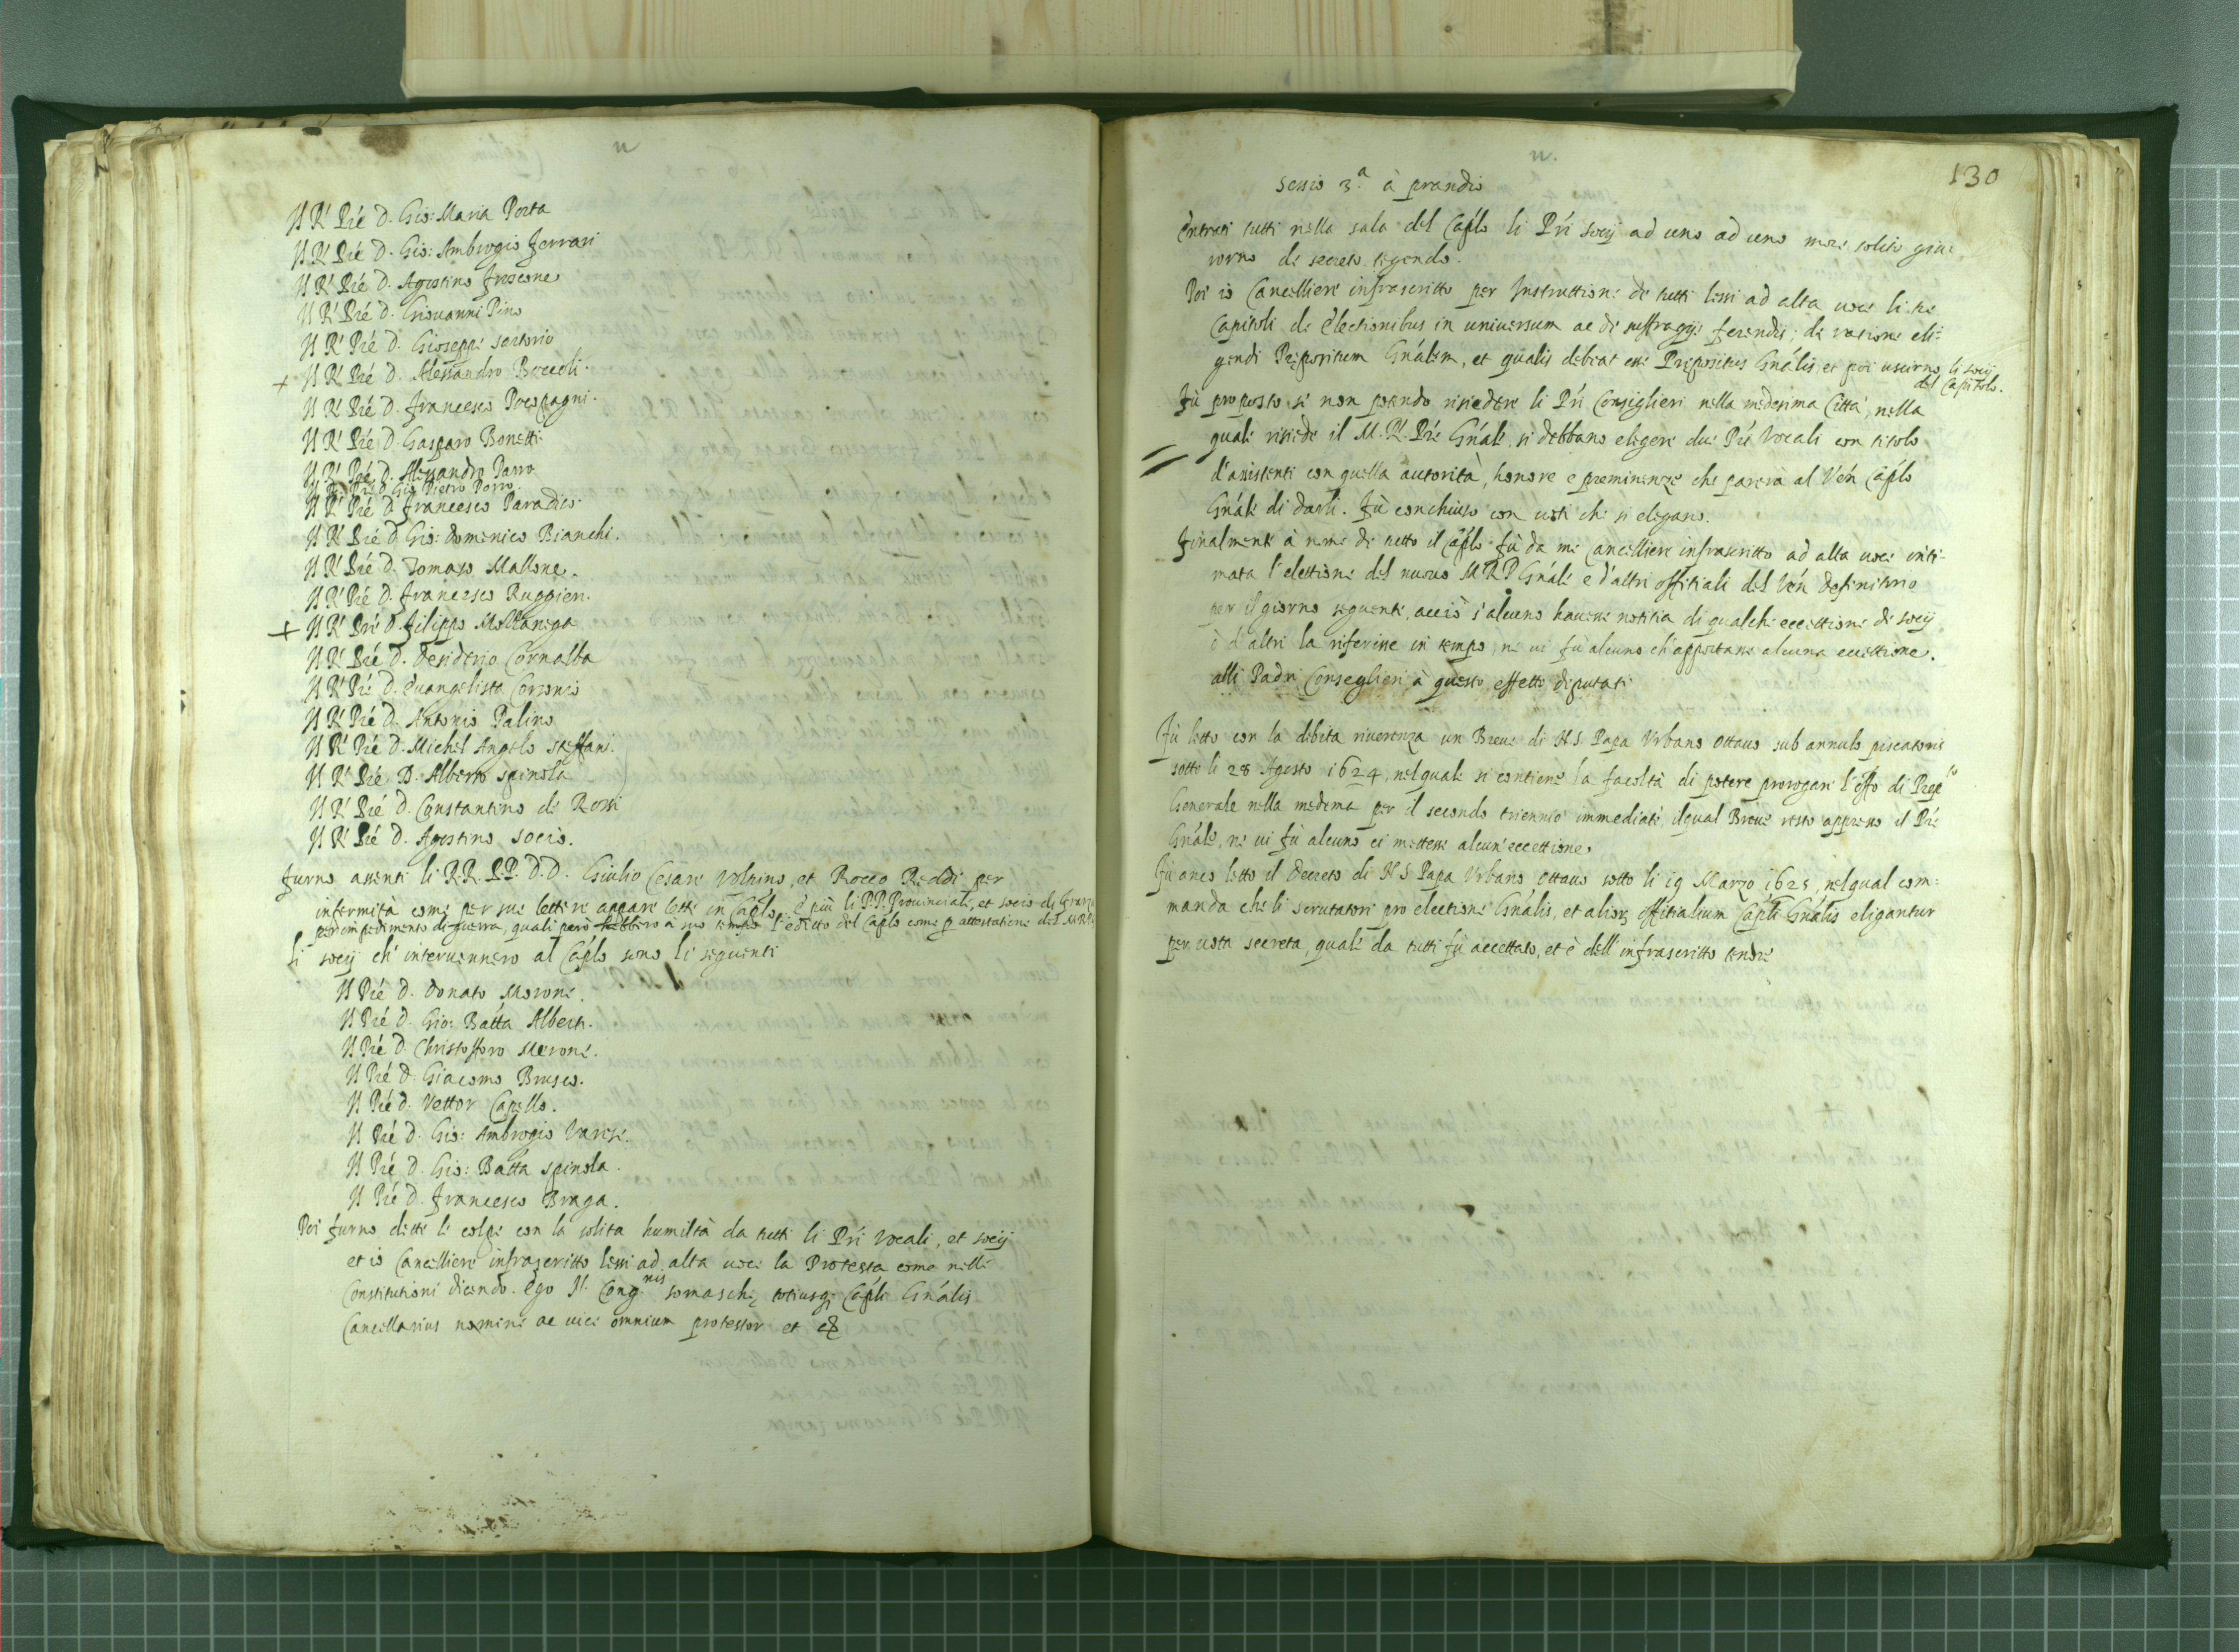 Il R. Pré D. Gio: Maria Porta
Il R. Pré D. Gio: Ambrogio Ferrari
Il R. Pré D. Agostino Froscone
Il R. Pré D. Giovanni Pino
Il R. Pré D. Gioseppe Sertorio
+ Il R. Pré D. Alessandro Boccoli
Il R. Pré D. Francesco
Il R. Pré D. Gasparo Bonetti
Il R. Pré D. Alessandro Porro
Il R. Pré D. Gio Pietro Porro.
Il R. Pré D. Francesco Paradiso
Il R. Pré D. Gio: Domenico Bianchi.
Il R. Pré D. Tomaso Mallone.
Il R. Pré D. Francesco Ruggieri.
+ Il R. Pré D. Filippo
Il R. Pré D. Desiderio Cornalba
Il R. Pré D. Evangelista Corsonio
Il R. Pré D. Antonio Palino
Il R. Pré D. Michel Angelo Steffani.
Il R. Pré D. Alberto Spinola
Il R. Pré D. Constantino de Rossi
Il R. Pré D. Agostino Socio.
Furno assenti li R.R. P.P. D.D. Giulio Cesare Volpino, et Rocco Reddi per
infermità come per sue lettere appare lette in Caplo, è più li P.P. Provinciale, et socio di
per impedimento di guerra, quali però hebbero à suo tempo l'editto del Caplo come p attestatione del
li socij ch'intervennero al Caplo sono li seguenti
Il Pré D. Donato Morone.
Il Pré D. Gio: Batta Alberti.
Il Pré D. Christofforo Merone.
Il Pré D. Giacomo Brusco.
Il Pré D. Vettor Capello.
Il Pré D. Gio: Ambrogio Varese.
Il Pré D. Gio: Batta Spinola.
Il Pré D. Francesco Braga.
Poi furno dette le colpe con la solita humiltà da tutti li Pri Vocali, et socij
et io Cancelliere infrascritto lessi ad alta voce la Protesta come nelle
Constitutioni dicendo. Ego N. Cong.nis somaschę totiusq; Capli Gnális
Cancellarius nomine ac vice omnium protestor et
130
Sessio 3.a à prandio
Entrati tutti nella sala del Caplo li Pri socij ad uno ad uno more solito giu:
rorno de secreto tegendo.
Poi io Cancelliere infrascritto per Instruttione di tutti lessi ad alta voce li tre
Capitoli de Electionibus in universum ac de suffragijs ferendis; de ratione eli:
gendi Prępositum Gnálem, et qualis debeat esse Prępositus Gnális, et poi uscirno li socij
del Capitolo.
Fù proposto se non potendo risiedere li Pri Consiglieri nella medesima Città, nella
quale risiede il M. R. Pré Gnále, si debbano elegere due Pri Vocali con titolo
d'assistenti con quella autorità, honore e preminenze che parerà al Ven Caplo
Gnále di darli. Fù conchiuso con voti che si elegano.
Finalmente à nome di tutto il Caplo fù da me Cancelliere infrascritto ad alta voce inti:
mata l'elettione del nuovo M. R. P. Gnále e d'altri offitiali del Ven Definitorio
per il giorno seguente, acciò s'alcuno havesse notitia di qualche eccettione di socij
ò d'altri la riferisse in tempo, ne vi fù alcuno ch'apportasse alcuna eccettione.
alli Padri Conseglieri à questo effetto deputati
Fù letto con la debita riverenza un Breve di N. S. Papa Urbano Ottavo sub annulo piscatoris
sotto li 28 Agosto 1624, nel quale si contiene la facoltà di potere prorogare l'offo di Prep.to
Generale nella medema per il secondo triennio immediate, il qual Breve restò appresso il Pré
Gnále, ne vi fù alcuno ci mettesse alcun'eccettione.
Fù anco letto il Decreto di N. S. Papa Urbano Ottavo sotto li 19 Marzo 1625, nel qual com:
manda che li scrutatori pro electione Gnális, et alior offitialium Capli Gnális eligantur
per vota secreta, quale da tutti fù accettato, et è dell'infrascritto tenore